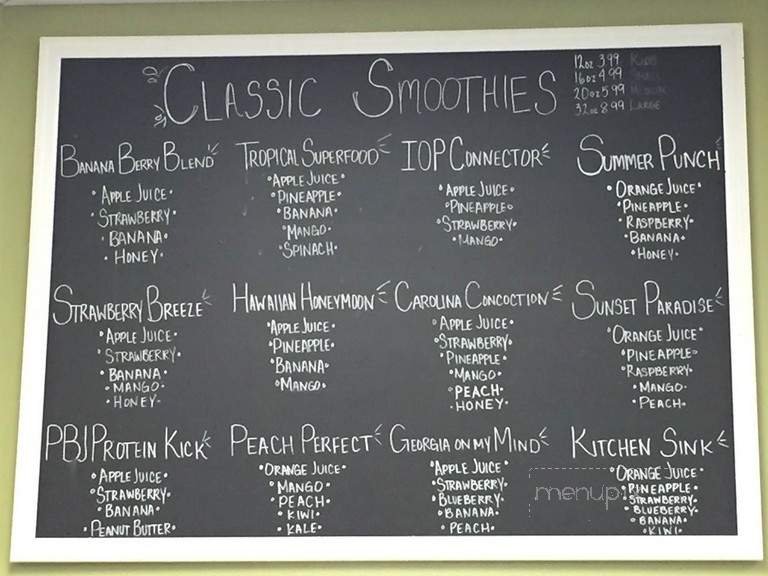 CLASSIC SMOOTHIES
12oz 3.99 KIDS
16oz 4.99 SMALL
20oz 5.99 MEDIUM
32oz 8.99 LARGE
BANANA BERRY BLEND
•APPLE JUICE•
•STRAWBERRY•
•BANANA•
•HONEY•
TROPICAL SUPERFOOD
•APPLE JUICE•
•PINEAPPLE•
•BANANA•
•MANGO•
•SPINACH•
IOP CONNECTOR
•APPLE JUICE•
•PINEAPPLE•
•STRAWBERRY•
•MANGO•
SUMMER PUNCH
•ORANGE JUICE•
•PINEAPPLE•
•RASPBERRY•
•BANANA•
•HONEY•
STRAWBERRY BREEZE
•APPLE JUICE•
•STRAWBERRY•
•BANANA•
•MANGO•
•HONEY•
HAWAIIAN HONEYMOON
•APPLE JUICE•
•PINEAPPLE•
•BANANA•
•MANGO•
CAROLINA CONCOCTION
•APPLE JUICE•
•STRAWBERRY•
•PINEAPPLE•
•MANGO•
•PEACH•
•HONEY•
SUNSET PARADISE
•ORANGE JUICE•
•PINEAPPLE•
•RASPBERRY•
•MANGO•
•PEACH•
PBJ PROTEIN KICK
•APPLE JUICE•
•STRAWBERRY•
•BANANA•
•PEANUT BUTTER•
PEACH PERFECT
•ORANGE JUICE•
•MANGO•
•PEACH•
•KIWI•
•KALE•
GEORGIA ON MY MIND
•APPLE JUICE•
•STRAWBERRY•
•BLUEBERRY•
•BANANA•
•PEACH•
KITCHEN SINK
•ORANGE JUICE•
•PINEAPPLE•
•STRAWBERRY•
•BLUEBERRY•
•BANANA•
•KIWI•